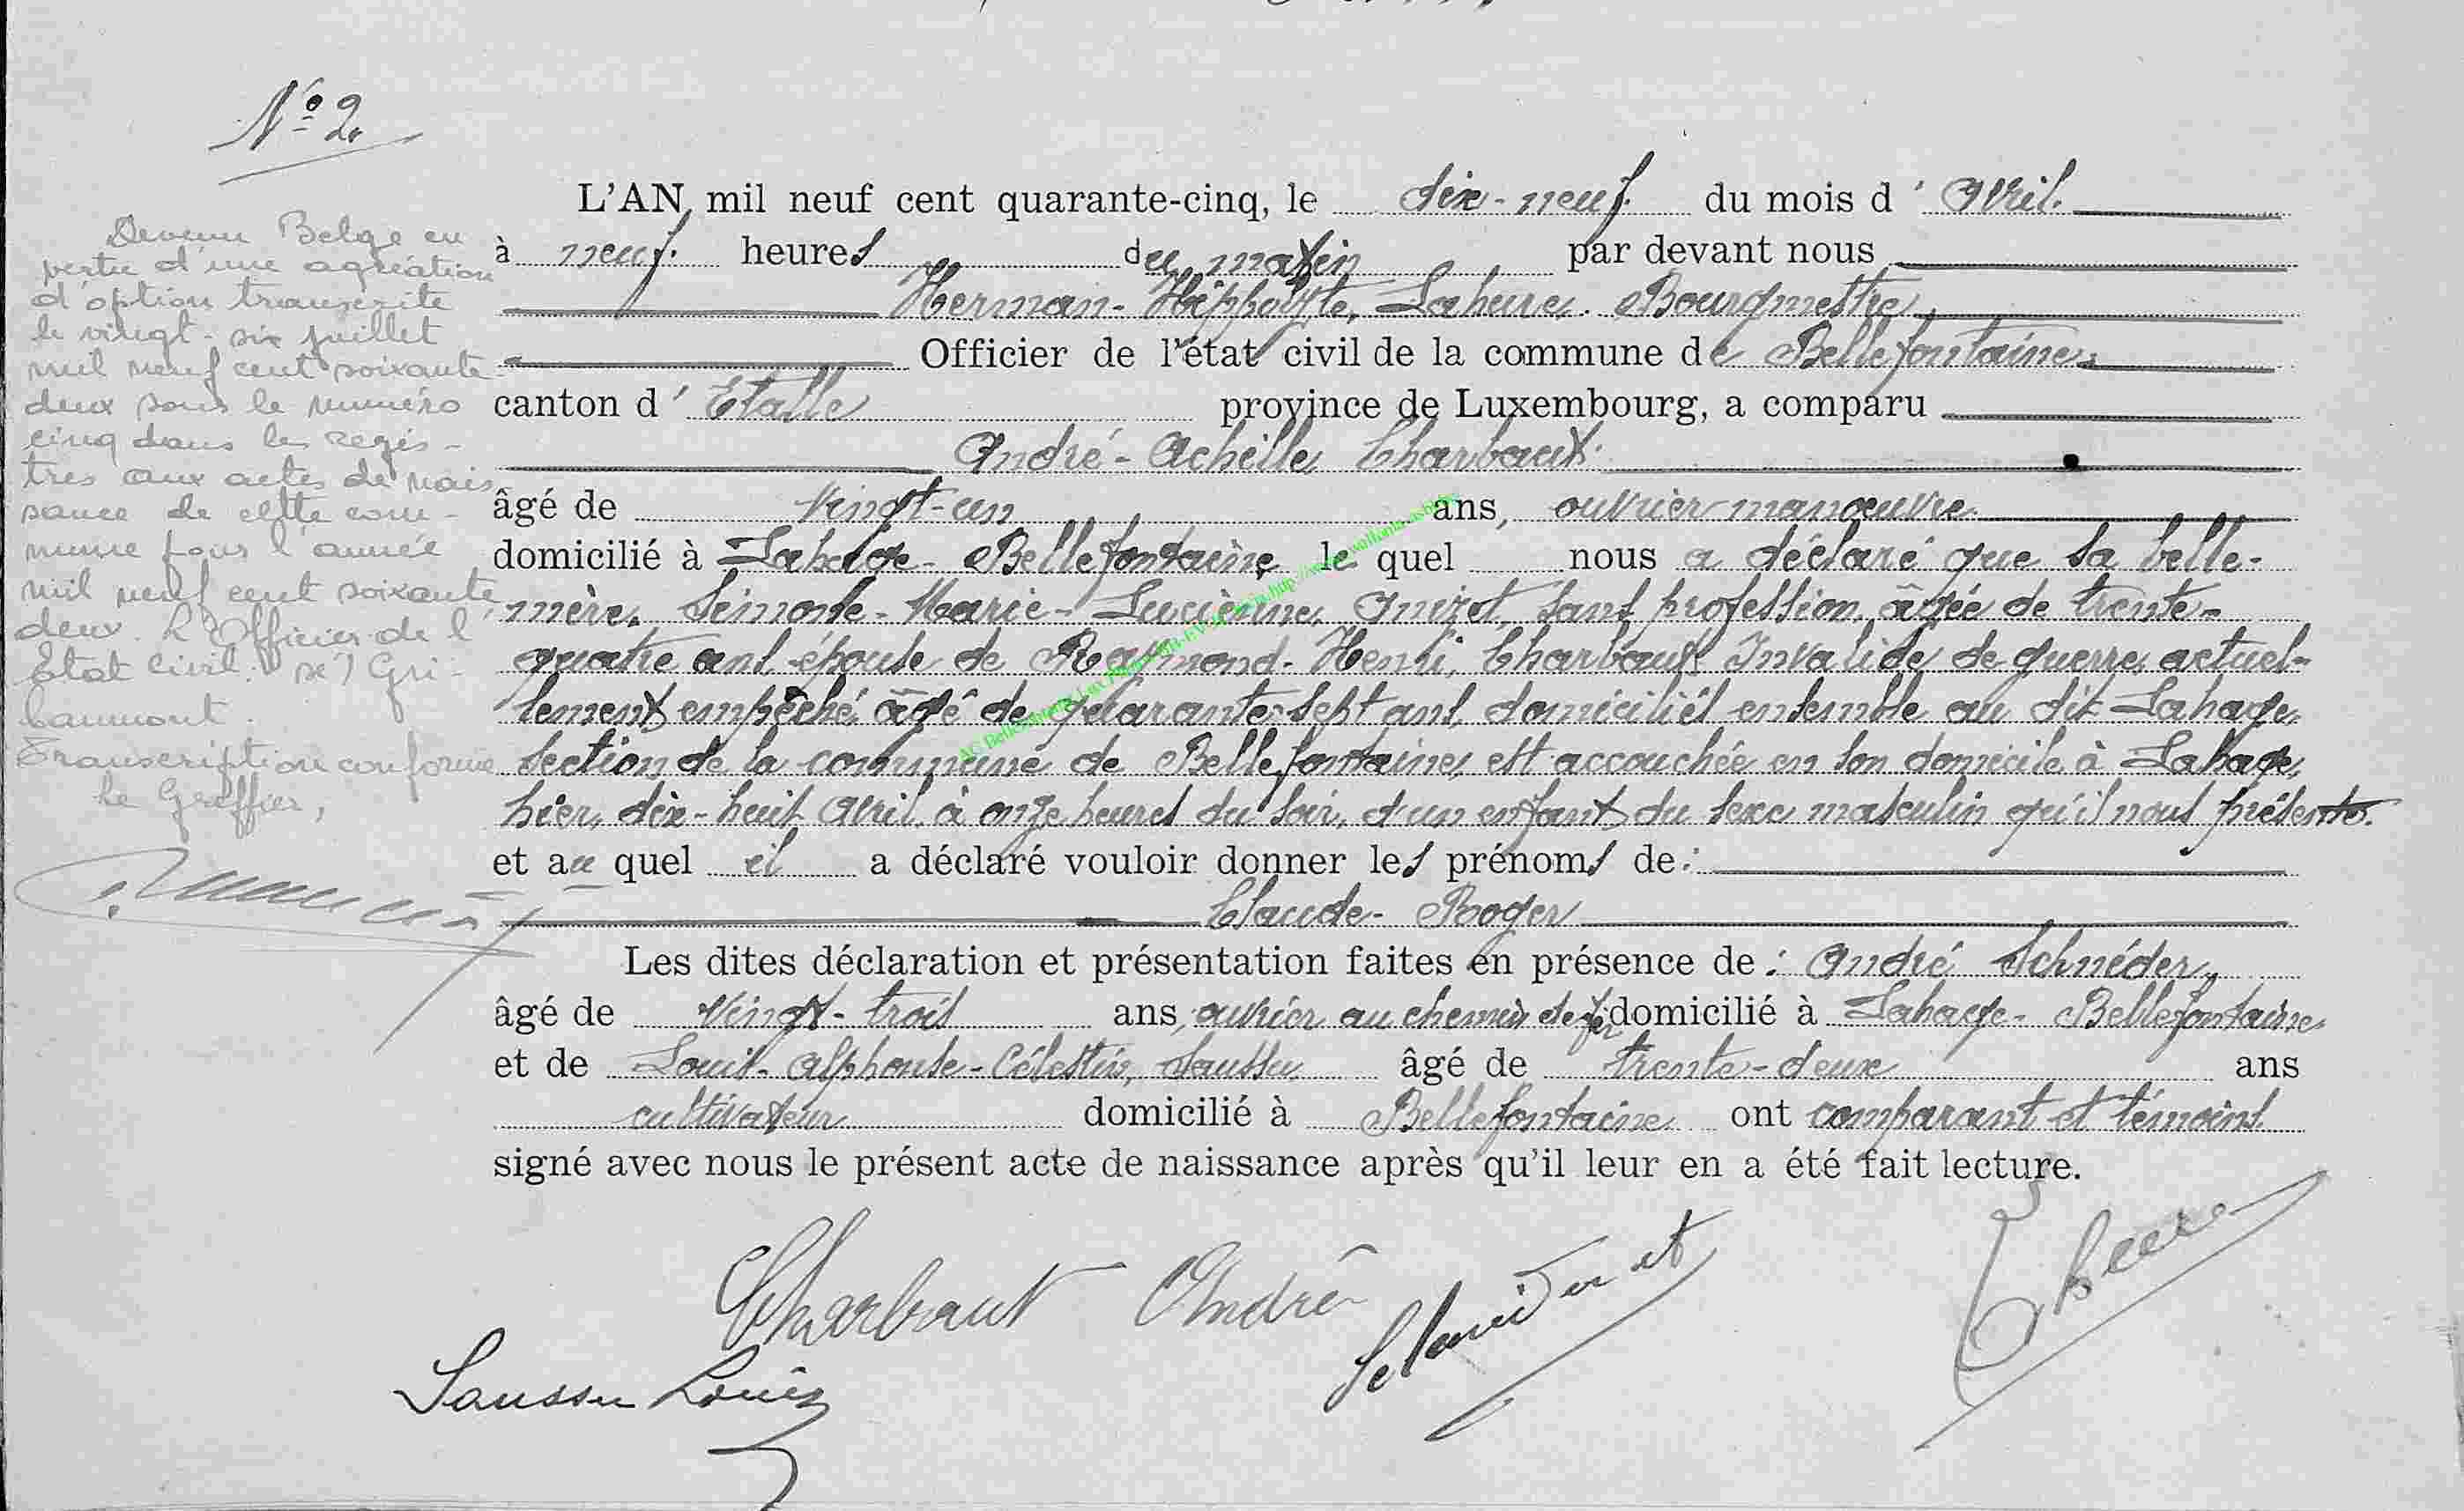 N° 2.
Devenu Belge en
vertu d'une agréation
d'option transcrite
le vingt-six juillet
mil neuf cent soixante
deux sous le numéro
cinq dans les regis-
tres aux actes de nais-
sance de cette com-
mune pour l'année
mil neuf cent soixante
deux. L'Officier de l'
Etat Civil. sé) Gri-
baumont.
Transcription conforme
Le Greffier,
L'AN mil neuf cent quarante-cinq, le dix-neuf. du mois d' Avril.
à neuf. heures du matin par devant nous
Herman-Hippolyte, Lahure. Bourgmestre,
Officier de l'état civil de la commune de Bellefontaine.
canton d' Etalle province de Luxembourg, a comparu
André-Achille Charbaut.
âgé de Vingt-un ans, ouvrier manœuvre
domicilié à Lahage-Bellefontaine le quel nous a déclaré que sa belle-
mère, Simone-Marie-Lucienne, sans profession, âgée de trente-
quatre ans épouse de Raymond-Henri, Charbaut Invalide de guerre actuel-
lement empêché, âgé de quarante-sept ans, domiciliés ensemble au dit Lahage,
section de la commune de Bellefontaine, est accouchée en son domicile à Lahage,
hier, dix-huit Avril, à onze heures du soir, d'un enfant du sexe masculin qu'il nous présente.
et au quel il a déclaré vouloir donner les prénoms de:
Claude-Roger
Les dites déclaration et présentation faites en présence de: André Schnéder,
âgé de Vingt-trois ans, ouvrier au chemin de fer domicilié à Lahage-Bellefontaine
et de Louis-Alphonse-Célestin, Saussu âgé de trente-deux ans
cultivateur domicilié à Bellefontaine ont comparant et témoins
signé avec nous le présent acte de naissance après qu'il leur en a été fait lecture.
Charbaut André
Saussu Louis